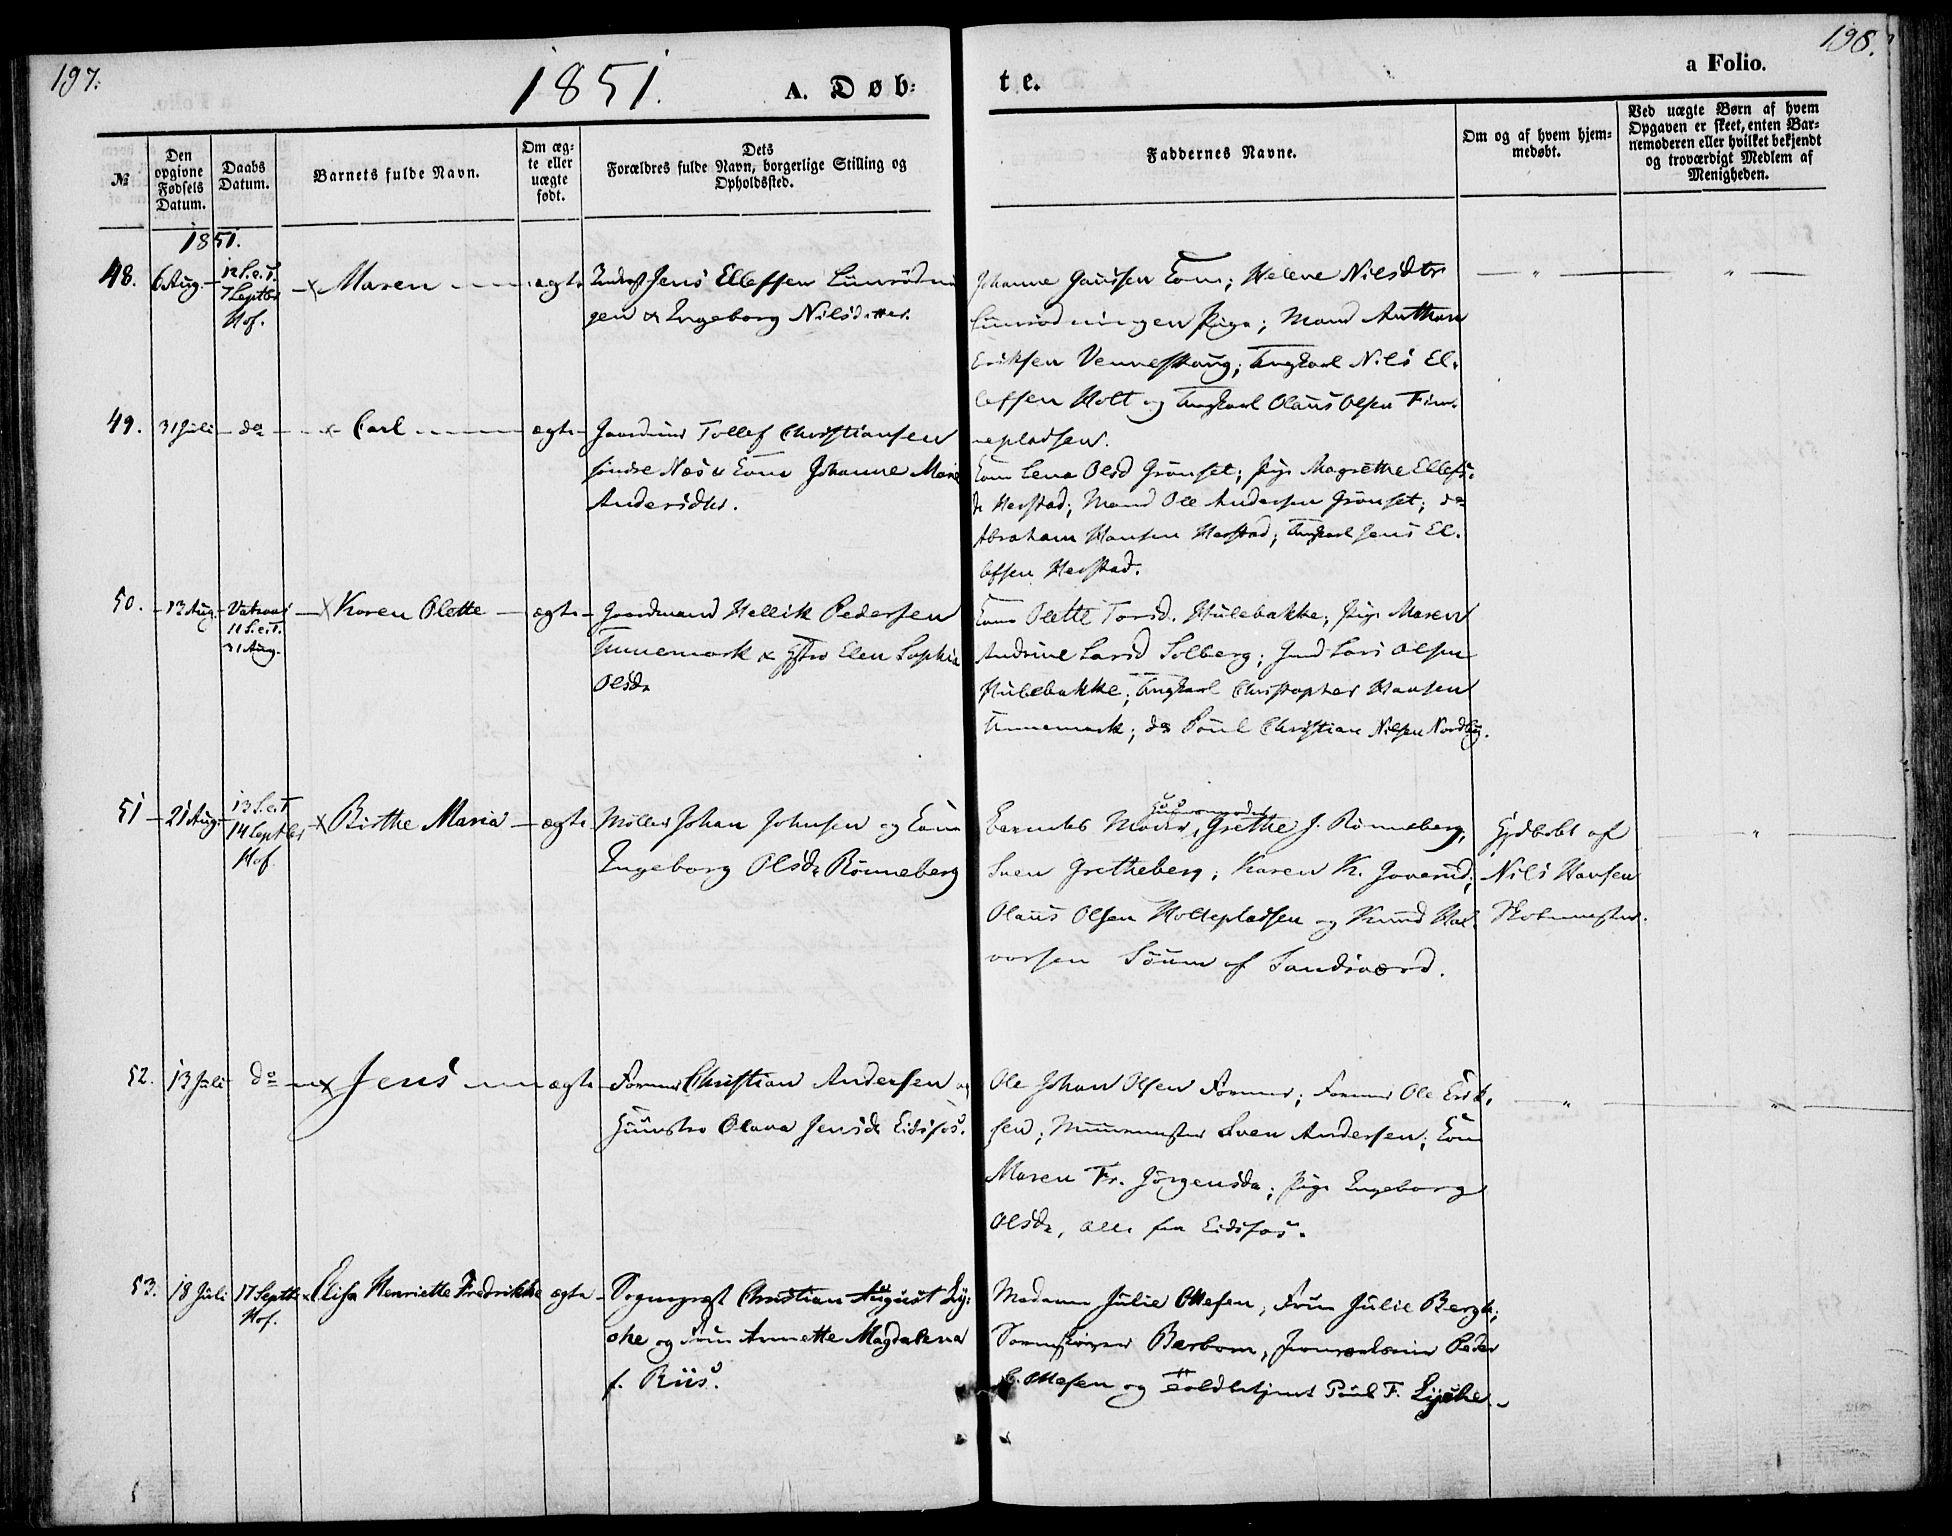 197.
1851.
A. Døb-
te.
198.
a Folio.
№
Den opgivne Fødsels Datum.
Daabs Datum.
Barnets fulde Navn.
Om ægte eller uægte født.
Dets Forældres fulde Navn, borgerlige Stilling og Opholdssted.
Faddernes Navne.
Om og af hvem hjem-
medøbt.
Ved uægte Børn af hvem
Opgaven er skeet, enten Bar-
nemoderen eller hvilket bekjendt
og troværdigt Medlem af
Menigheden.
1851.
48. 6 Aug. 12 S.e.T. 7 Septbr Hof. Maren ægte
Jens Ellefsen
gen & Ingeborg Nilsdatter.
Johanne Paulsen Kone; Helene Nilsdtr
Pige; Mand Anthon
Eriksen Venneskaug; Ungkarl Nils El-
lefsen Holt og Ungkarl Olaus Olsen Fin-
nepladsen.
49. 31 Juli do Carl ægte
Gaardmand Tollef Christiansen
søndre Næs & Kone Johanne Marie
Andersdtr.
Kone Lena Olsd Grønset; Pige Magrethe Ellefs-
dr Herstad; Mand Ole Andersen Grønset; do
Abraham Hansen Herstad; Ungkarl Jens El-
lefsen Herstad.
50. 13 Aug. Vatnaas 11 S.e.T. 31 Aug. Karen Olette ægte
Gaardmand Hellik Pedersen
Tinnemark & Hstro Elen Sophia
Olsdr
Kone Olette Torsd. Hulebakke; Pige Maren
Andrine Larsd Solberg; Gmd Lars Olsen
Hulebakke; Ungkarl Christopher Hansen
Tinnemark; do Poul Christian Nilsen Nordby.
51 21 Aug. 13 S.e.T. 14 Septbr Hof. Birthe Maria ægte
Møller Johan Johnsen og Kone
Ingeborg Olsdr Rønneberg
Barnets Moder, Grethe J. Rønneberg,
Sven Gretheberg; Karen K. Gaverud;
Olaus Olsen Holtepladsen og Knud Hal-
vorsen Søum af Sandsværd.
Hjdøbt af
Nils Hansen
Skolemester.
52. 13 Juli do Jens ægte
Former Christian Andersen og
Huustro Olava Jensdr Eidsfos.
Ole Johan Olsen Former; Former Ole Erik-
sen; Muurmester Sven Andersen; Kone
Maren Fr. Jörgensdr; Pige Ingeborg
Olsdr, alle fra Eidsfos.
53. 18 Juli 17 Septbr Hof. Elisa Henriette Fredrikke ægte
Sognepræst Christian August Ly-
che og Frue Annette Magdalena
f. Riis.
Madame Julie Ottesen; Frue Julie Bergh;
Sorenskriver Barbom, Peder
C. Ottesen og Toldbetjent Poul F. Lyche.